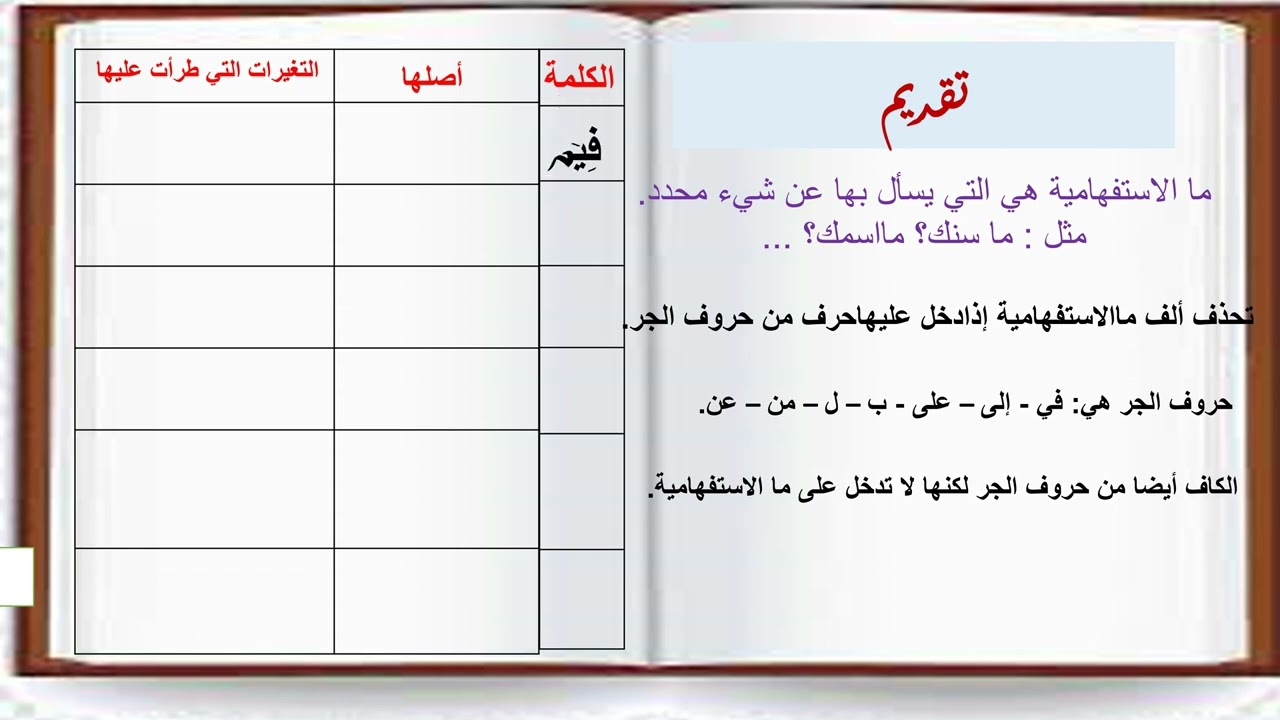 تقديم
ما الاستفهامية هي التي يسأل بها عن شيء محدد.
مثل : ما سنك؟ مااسمك؟ ...
تحذف ألف ماالاستفهامية إذادخل عليهاحرف من حروف الجر.
حروف الجر هي: في - إلى – على - ب – ل – من – عن.
الكاف أيضا من حروف الجر لكنها لا تدخل على ما الاستفهامية.
الكلمة أصلها التغيرات التي طرأت عليها
فِيَم